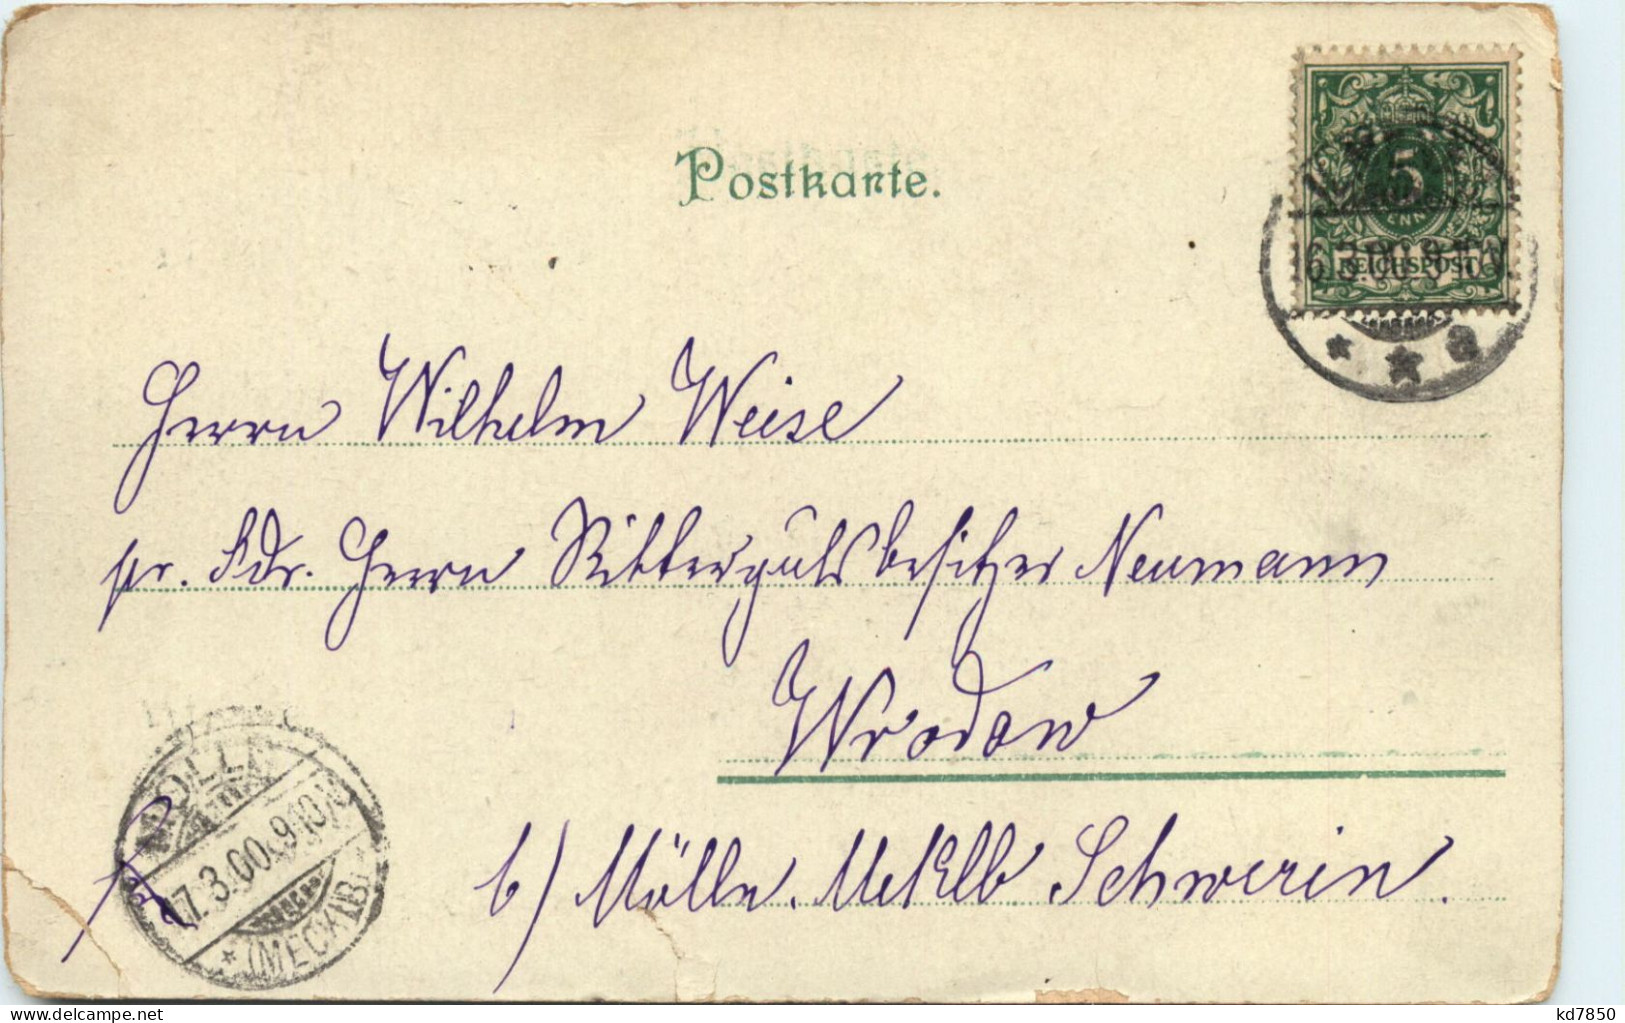 Postkarte.
5
REICHSPOST
16.3.00.9-10V.
a
Herrn Wilhelm Weise
pr. Adr. Herrn Rittergutsbesitzer Neumann
Wrodow
b/ Mölln. Meklb Schwerin.
MÖLLN
17.3.00.9-10V
(MECKLB.)
kd7850